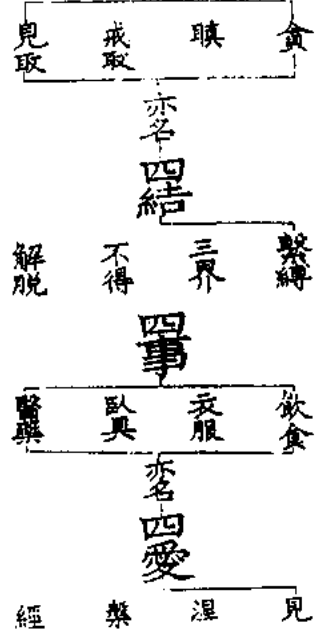 貪 瞋 戒取 見取
亦名
四結
繫縛 三界 不得 解脱
四事
飲食 衣服 臥具 醫藥
亦名
四愛
見 涅 槃 經